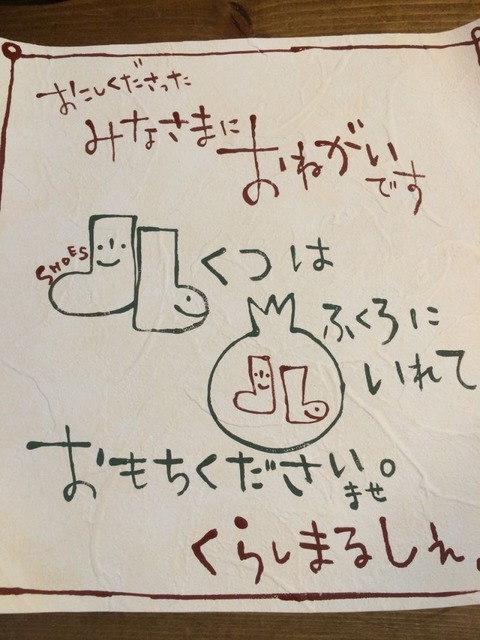 おこしくださった
みなさまに
おねがい
です
SHOES
くつは
ふくろに
いれて
おもちください。
ませ
くらしまるしぇ。